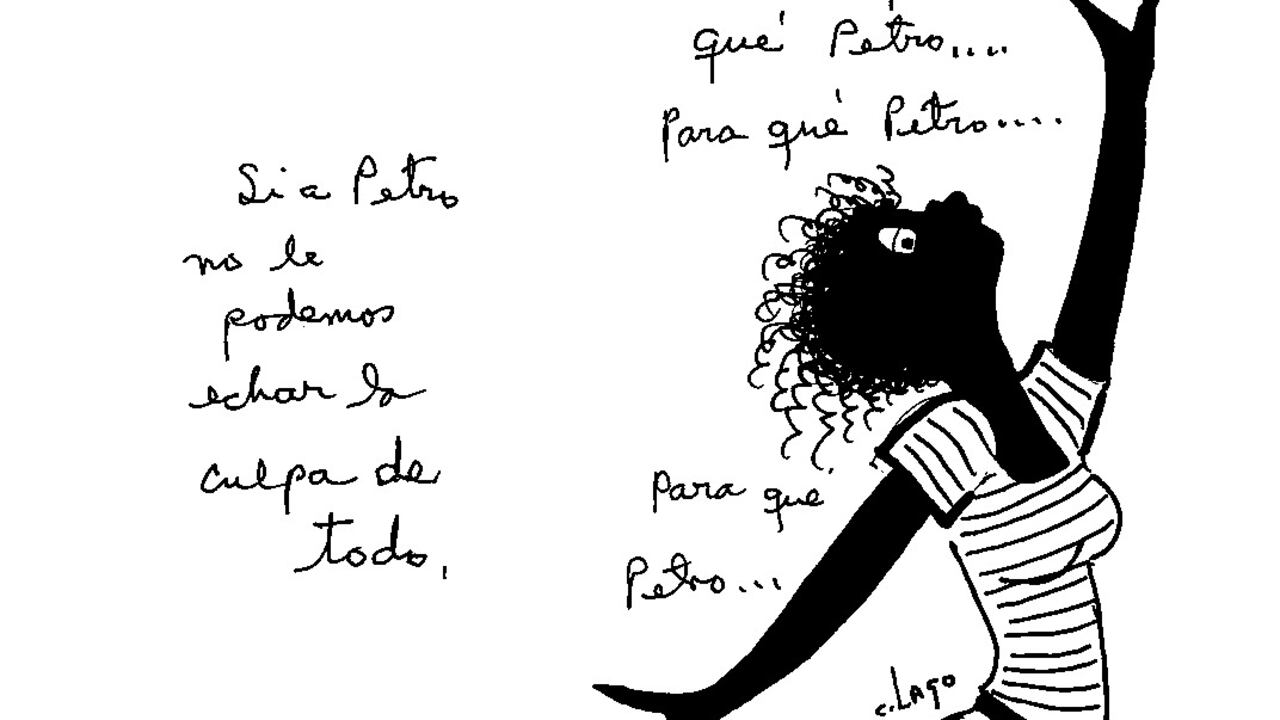 Si a Petro
no le
podemos
echar la
culpa de
todo,
qué Petro....
Para qué Petro....
Para que
Petro...
c. Lago